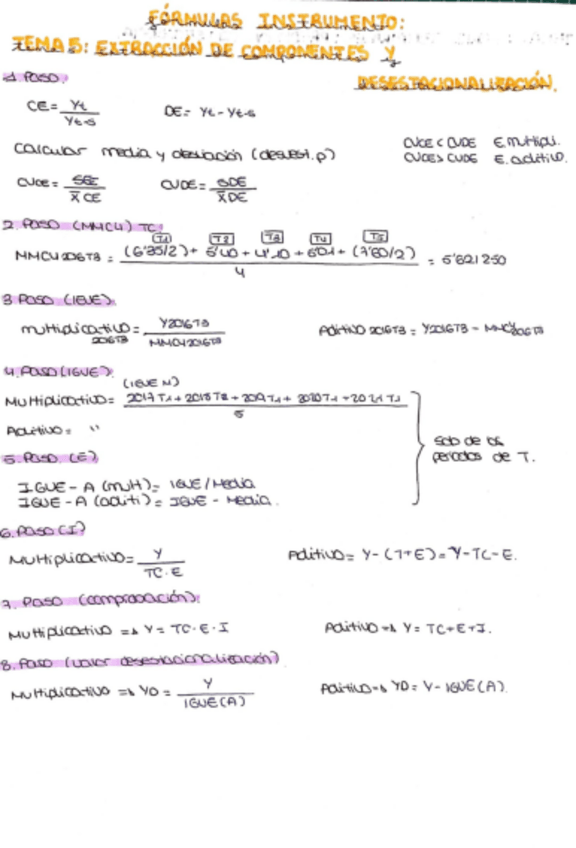 FÓRMULAS INSTRUMENTO:
TEMA 5: EXTRACCIÓN DE COMPONENTES Y
DESESTACIONALIZACIÓN.
1. PASO:
CE = Yt / Yt-s DE = Yt - Yt-s
Calcular media y desviación (desvest.p) CVCE < CVDE E.multipli.
CVCE > CVDE E. aditivo.
CVCE = SCE / X̄ CE CVDE = SDE / X̄ DE
2. PASO (MMC4) TC:
T1 T2 T3 T4 T5
MMC4 2016T3 = (6'35/2) + 5'40 + 4'10 + 6'01 + (7'60/2) / 4 = 5'621250
3. PASO (IGVE).
multiplicativo 2016T3 = Y2016T3 / MMC42016T3 Aditivo 2016T3 = Y2016T3 - MMC42016T3
4. PASO (IGVE).
(IGVE M)
Multiplicativo = 2017 T1 + 2018 T1 + 2019 T1 + 2020 T1 + 2021 T1 / 5
Aditivo = "
Solo de los
periodos de T.
5. PASO. (E)
IGVE - A (mult) = IGVE / Media
IGVE - A (aditi) = IGVE - Media.
6. PASO (I)
Multiplicativo = Y / TC·E Aditivo = Y - (T+E) = Y - TC - E.
7. PASO (comprobación):
Multiplicativo => Y = TC·E·I Aditivo => Y = TC + E + I.
8. PASO (valor desestacionalización)
Multiplicativo => YD = Y / IGVE (A) Aditivo => YD = Y - IGVE (A).